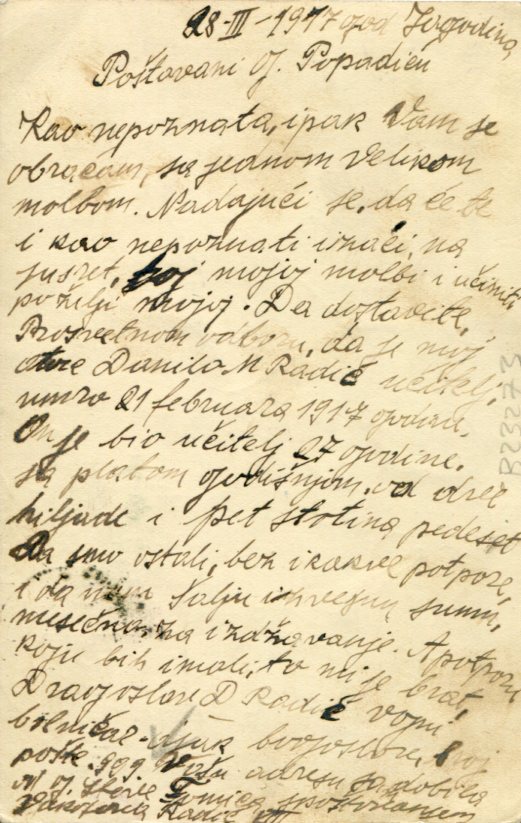 28-III-1917 god Jagodina
Poštovani G. Popadiću
Kao nepoznata, ipak Vam se
obraćam, sa jednom velikom
molbom. Nadajući se, da će te
i kao nepoznati izaći, na
susret, mojoj molbi i učiniti
po želji mojoj. Da dostavite,
Prosvetnom odboru, da je moj
otac Danilo M Radić učitelj,
umro 21 februara 1917 godine.
On je bio učitelj 27 godine.
sa platom godišnjom, od dve
hiljade i pet stotina pedeset
Da smo ostali, bez ikakve potpore,
i da nam šalju izvesnu sumu,
mesečno, za izdržavanje. A potporu
koju bih imali, to mi je brat,
Dragoslav D Radić vojni
bolničar-djak bogoslov, broj
pošte 999 Vašu adresu sa dobila
od g. Stevie Tomića s poštovanjem
Radić
B23273